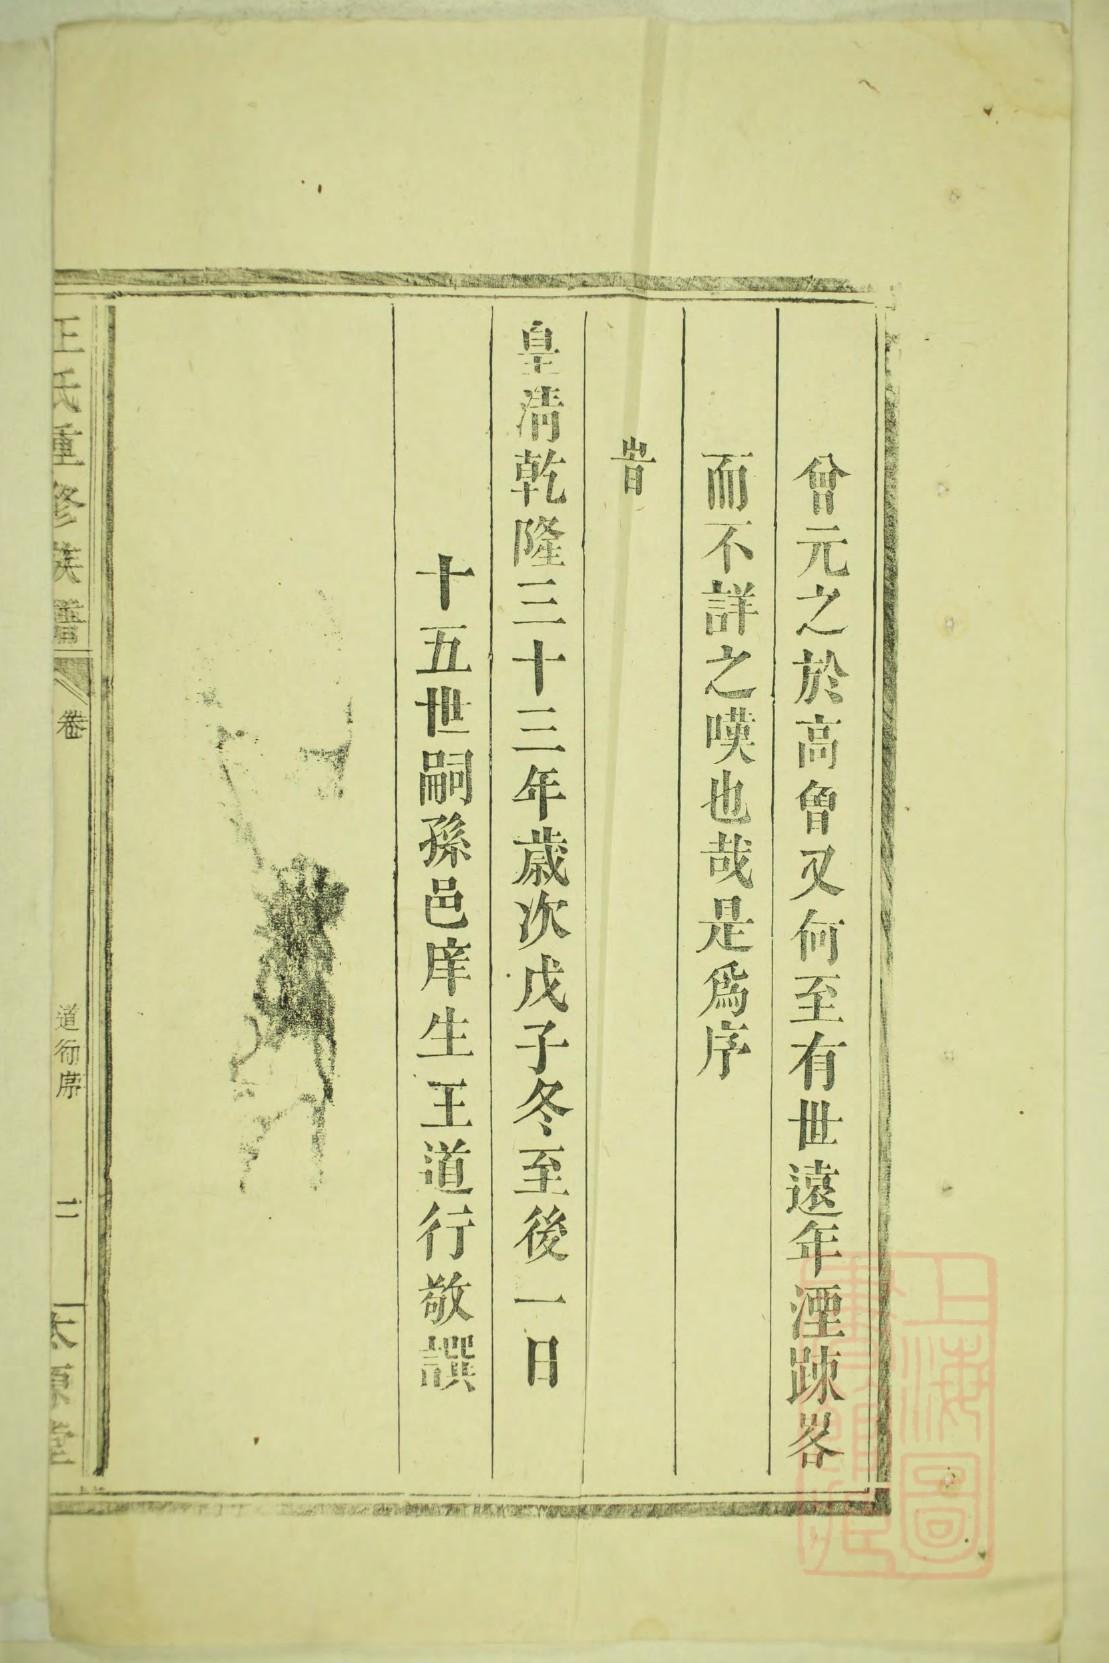 曾元之於高曾又何至有世遠年湮踈畧
而不詳之嘆也哉是爲序
旹
皇清乾隆三十三年歲次戊子冬至後一日
十五世嗣孫邑庠生王道行敬譔
王氏重修族譜
卷
道行序
二
太原堂
上海圖
書館藏